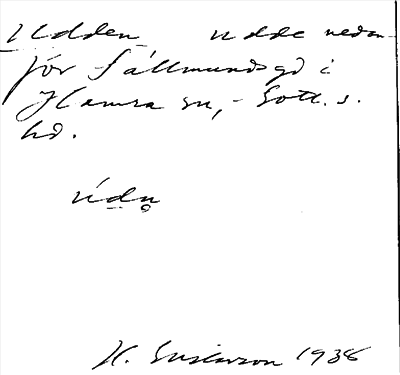 Udden udde nedan-
för Sällmundsgd i
Hamra sn, Gotl. s.
hd.
údn̥
H. Gustavson 1938